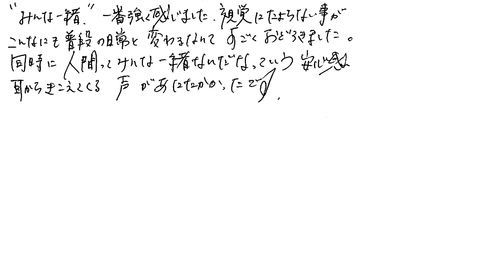 "みんな一緒。" 一番強く感じました。視覚にたよらない事が
こんなにも普段の日常と変わるなんてすごくおどろきました。
同時に人間ってみんな一緒なんだなっていう安心感と
耳からきこえてくる声があたたかかったです。